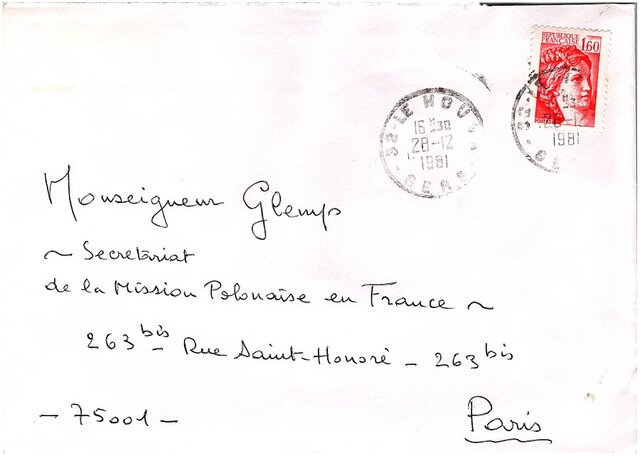 REPUBLIQUE
FRANÇAISE
1,60
32-LE HOUGA
16 H30
28-12
1981
GERS
28-12
1981
Monseigneur Glemp
~ Secrétariat
de la Mission Polonaise en France ~
263 bis Rue Saint-Honoré - 263 bis
- 75001 -
Paris